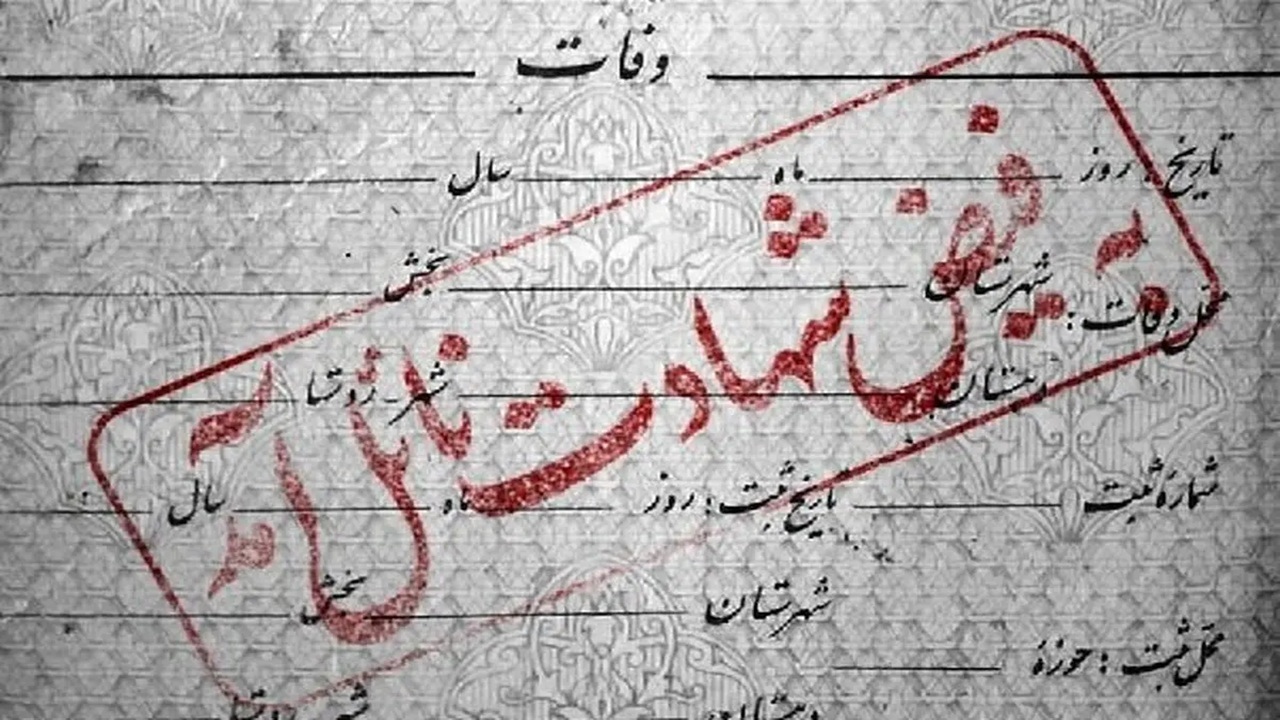 وفات
تاریخ: روز ماه سال
محل وفات: شهرستان بخش
دهستان شهر - روستا
شمارهٔ ثبت تاریخ ثبت: روز ماه سال
محل ثبت: حوزهٔ شهرستان بخش
دهستان شهر - روستا
به فیض شهادت نائل آمد